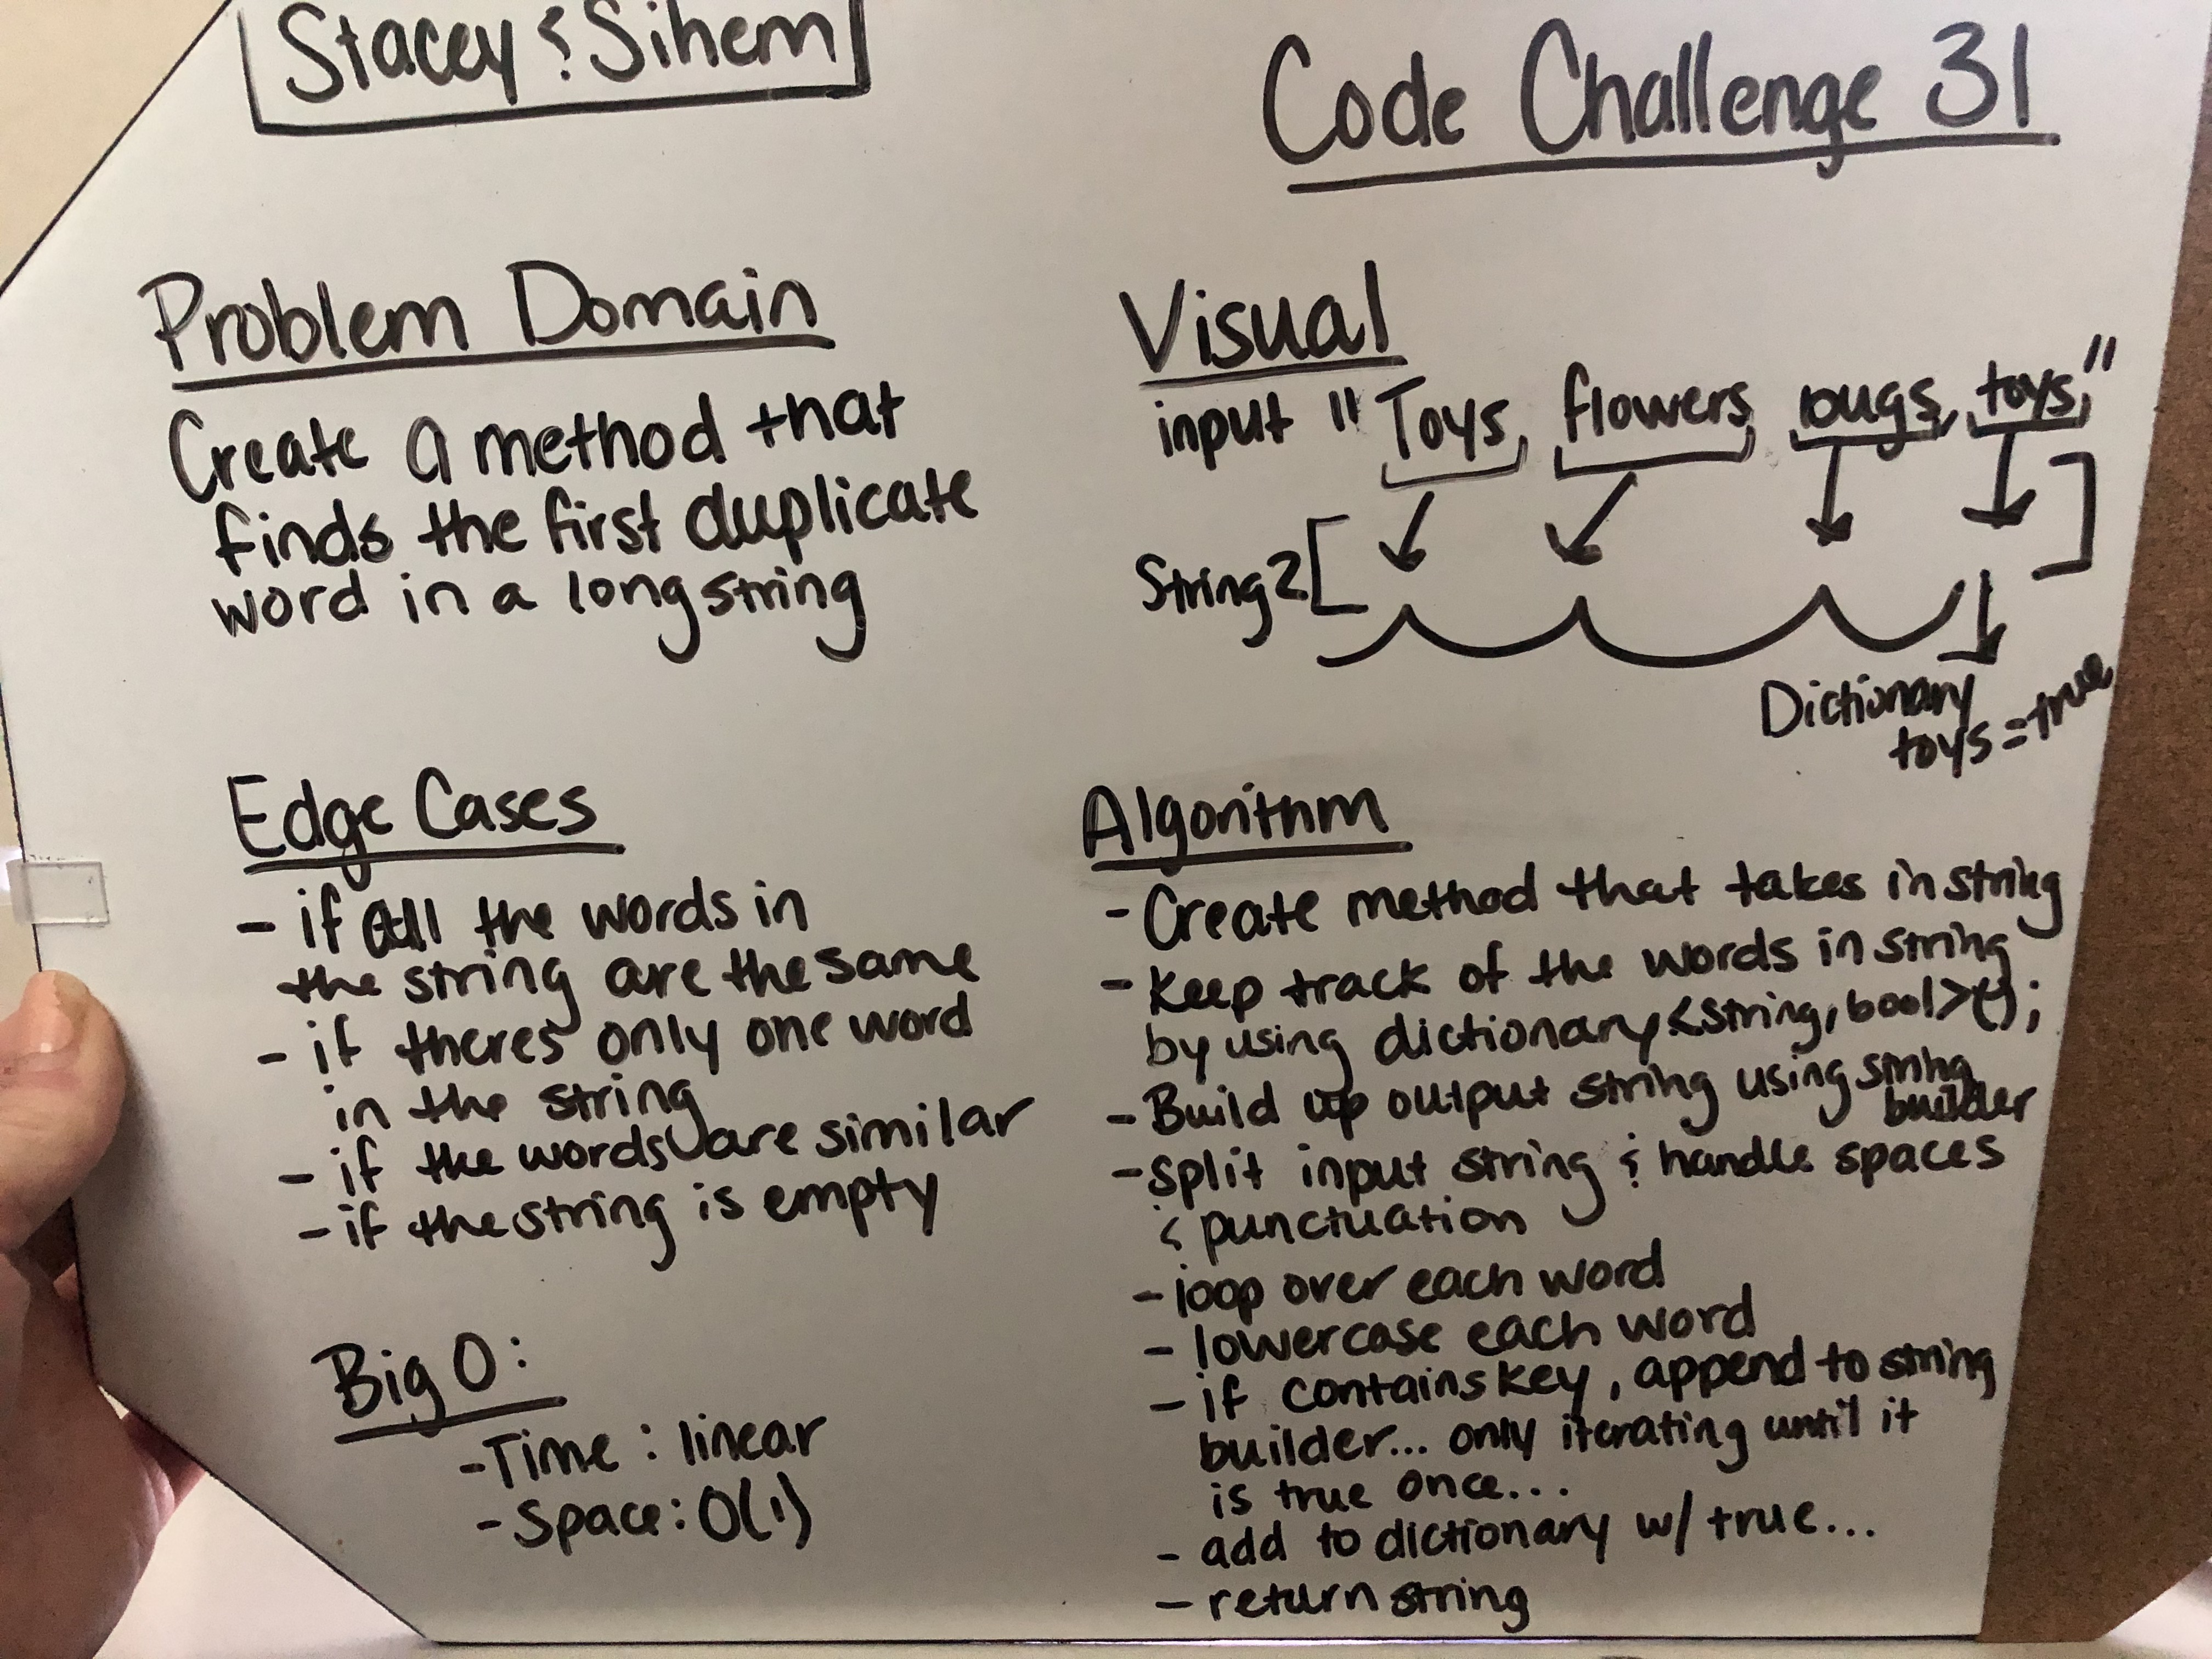 Stacey & Sihem
Code Challenge 31
Problem Domain
Create a method that
finds the first duplicate
word in a long string
Visual
input "Toys, flowers, bugs, toys,"
String2 [ ]
Dictionary
toys = true
Edge Cases
- if all the words in
the string are the same
- if theres only one word
in the string
- if the words are similar
- if the string is empty
Big O:
- Time : linear
- Space: O(1)
Algorithm
- Create method that takes in string
- Keep track of the words in string
by using dictionary<string, bool>();
- Build up output string using string
builder
- split input string & handle spaces
& punctuation
- loop over each word
- lowercase each word
- if contains key, append to string
builder... only iterating until it
is true once...
- add to dictionary w/ true...
- return string